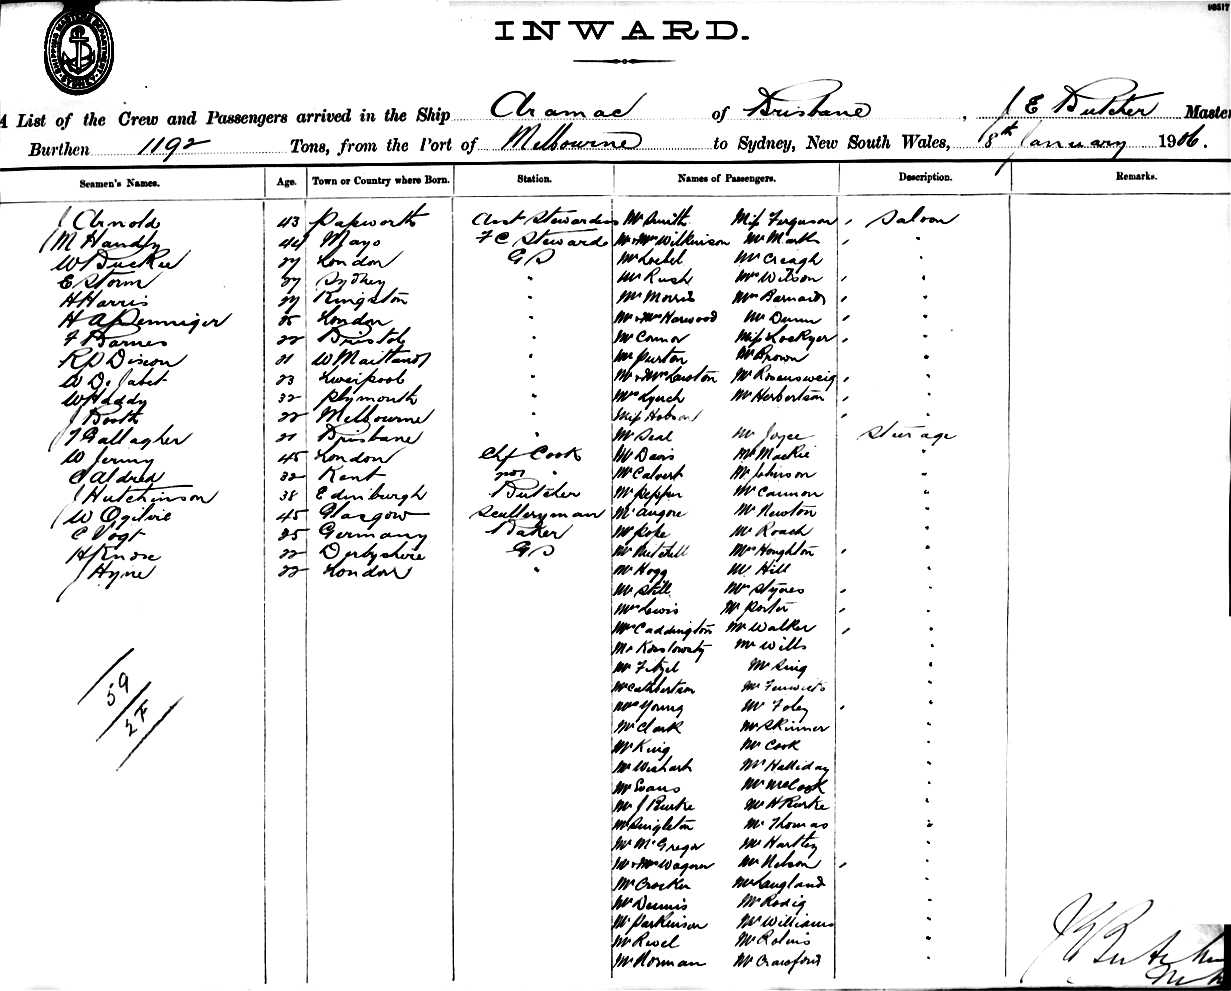 10517
INWARD.
A List of the Crew and Passengers arrived in the Ship Aramac of Brisbane, J E Butcher Master
Burthen 1192 Tons, from the Port of Melbourne to Sydney, New South Wales, 8th January 1906.
Seamen's Names. Age. Town or Country where Born. Station. Names of Passengers. Description. Remarks.
J Arnold 43 Papworth Asst Stewardess Mr Smith Miss Ferguson Saloon
M Handly 44 Mayo F C Steward Mr & Mrs Wilkinson Mr Marks "
W Buckie 27 London G S Mr Loebel Mr Creagh "
E Storm 27 Sydney " Mr Rush Mrs Wilson "
H Harris 27 Kingston " Mr Morris Mrs Barnard "
H A Penniger 25 London " Mr & Mrs Harwood Mr Dunn "
F Barnes 22 Bristol " Mr Connor Miss Lockyer "
R D Dixon 21 W Maitland " Mr Purton Mr Brown "
W D. Jabet 23 Liverpool " Mr & Mrs Lawton Mr Rosensweig "
W Haddy 32 Plymouth " Mrs Lynch Mr Herbertson "
J Booth 22 Melbourne " Miss Hobson "
T Gallagher 21 Brisbane " Mr Seal Mr Joyce Steerage
W Jenny 45 London Chf Cook Mr Davis Mr Mackie "
C Aldred 32 Kent " Mr Calvert Mr Johnson "
J Hutchinson 38 Edinburgh Butcher Mr Pepper Mr Cannon "
W Ogilvie 45 Glasgow Sculleryman Mr Newton "
C Vogt 25 Germany Baker Mr Pope Mr Roach "
H Knose 22 Derbyshire G S Mr Mitchell Mrs Houghton "
J Hyne 22 London " Mr Hogg Mr Hill "
Mr Still Mrs Stynes "
Mrs Lewis Mr Porter "
Mrs Caddington Mr Walker "
Mr Wills "
Mr Fitzel Mr Sing "
Mr Cuthbertson Mr Fenwick "
Mrs Young Mr Foley "
Mr Clark Mr Skinner "
Mr King Mr Cook "
Mr Wishart Mr Halliday "
Mr Evans Mr McCook "
Mr J Burke Mr H Burke "
Mr Singleton Mr Thomas "
Mr McGregor Mr Hartley "
Mr & Mrs Wagner Mr Nelson "
Mr Crocker Mr Langland "
Mr Dennis Mr Rodig "
Mr Parkinson Mr Williams "
Mr Revel Mr Robins "
Mr Norman Mr Crawford "
59
27
J E Butcher